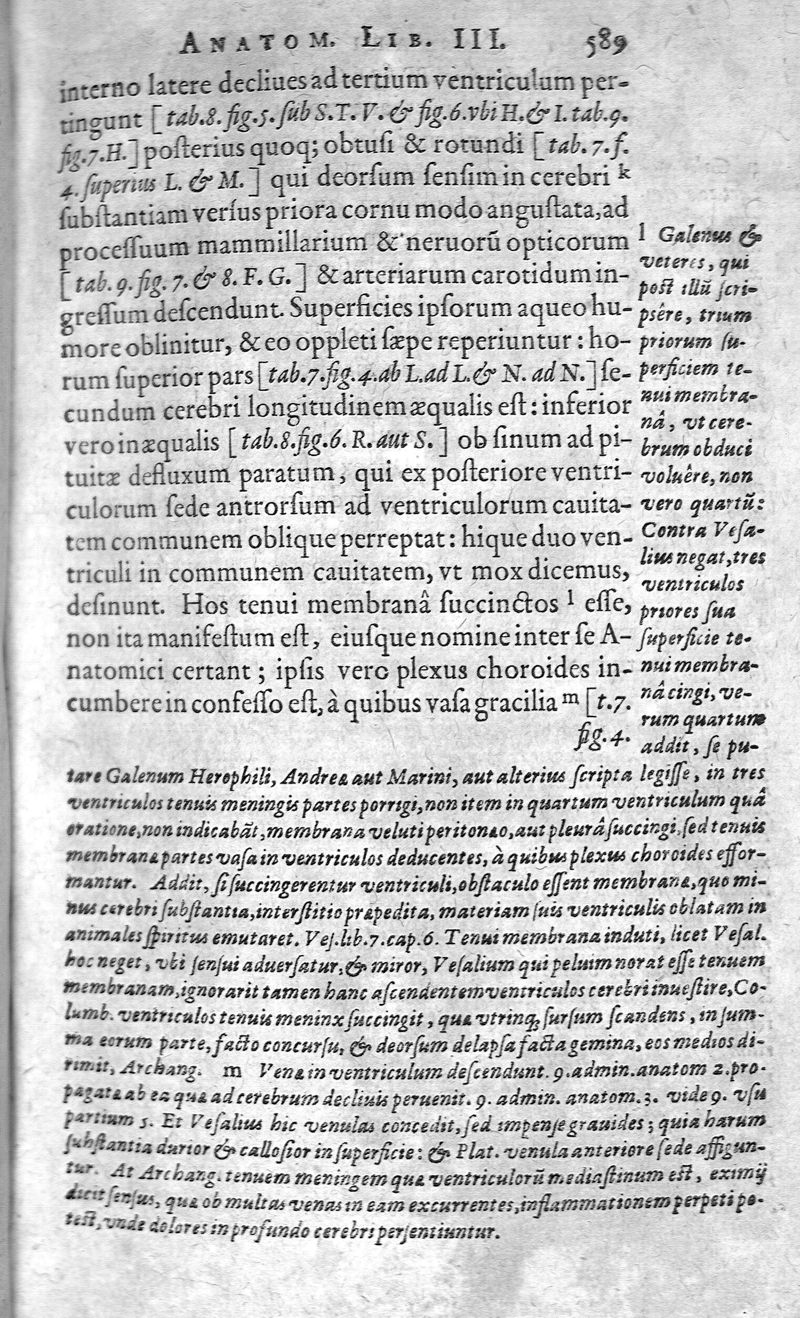 ANATOM. LIB. III. 589
interno latere decliues ad tertium ventriculum per-
tingunt [tab.8.fig.5.ſub S.T.V. & fig.6.vbi H.& I.tab.9.
fig.7.H.] poſterius quoq; obtuſi & rotundi [tab. 7.f.
4. ſuperius L. & M.] qui deorſum ſenſim in cerebri k
ſubſtantiam verſus priora cornu modo anguſtata, ad
proceſſuum mammillarium & neruorū opticorum
[tab. 9. fig. 7. & 8. F. G.] & arteriarum carotidum in-
greſſum deſcendunt. Superficies ipſorum aqueo hu-
more oblinitur, & eo oppleti ſæpe reperiuntur: ho-
rum ſuperior pars [tab.7.fig.4.ab L.ad L.& N. ad N.] ſe-
cundum cerebri longitudinem æqualis eſt: inferior
vero inæqualis [tab.8.fig.6. R. aut S.] ob ſinum ad pi-
tuitæ defluxum paratum, qui ex poſteriore ventri-
culorum ſede antrorſum ad ventriculorum cauita-
tem communem oblique perreptat: hique duo ven-
triculi in communem cauitatem, vt mox dicemus,
deſinunt. Hos tenui membranâ ſuccinctos l eſſe,
non ita manifeſtum eſt, eiuſque nomine inter ſe A-
natomici certant; ipſis vero plexus choroides in-
cumbere in confeſſo eſt, à quibus vaſa gracilia m [t.7.
fig.4.
l Galenus &
veteres, qui
poſt illū ſcri-
pſêre, trium
priorum ſu-
perficiem te-
nui membra-
nâ, vt cere-
brum obduci
voluêre, non
vero quartū:
Contra Veſa-
lius negat, tres
ventriculos
priores ſua
ſuperficie te-
nui membra-
nâ cingi, ve-
rum quartum
addit, ſe pu-
tare Galenum Herophili, Andreæ aut Marini, aut alterius ſcripta legiſſe, in tres
ventriculos tenuis meningis partes porrigi, non item in quartum ventriculum quâ
oratione, non indicabāt, membrana veluti peritonæo, aut pleurâ ſuccingi, ſed tenuis
membranæ partes vaſa in ventriculos deducentes, à quibus plexus choroides effor-
mantur. Addit, ſi ſuccingerentur ventriculi, obſtaculo eſſent membranæ, quo mi-
nus cerebri ſubſtantia, interſtitio præpedita, materiam ſuis ventriculis oblatam in
animales ſpiritus emutaret. Veſ. lib. 7. cap. 6. Tenui membrana induti, licet Veſal.
hoc neget, vbi ſenſui aduerſatur, & miror, Veſalium qui peluim norat eſſe tenuem
membranam, ignorarit tamen hanc aſcendentem ventriculos cerebri inueſtire, Co-
lumb. ventriculos tenuis meninx ſuccingit, quæ vtrinq; ſurſum ſcandens, in ſum-
ma eorum parte, facto concurſu, & deorſum delapſa facta gemina, eos medios di-
rimit, Archang. m Venæ in ventriculum deſcendunt. 9. admin. anatom 2. pro-
pagatæ ab ea quæ ad cerebrum decliuis peruenit. 9. admin. anatom. 3. vide 9. vſu
partium 5. Et Veſalius hic venulas concedit, ſed impenſe grauides; quia harum
ſubſtantia durior & calloſior in ſuperficie: & Plat. venula anteriore ſede affigun-
tur. At Archang. tenuem meningem quæ ventriculorū mediaſtinum eſt, eximij
dicit ſenſus, quæ ob multas venas in eam excurrentes, inflammationem perpeti po-
teſt, vnde dolores in profundo cerebri perſentiuntur.